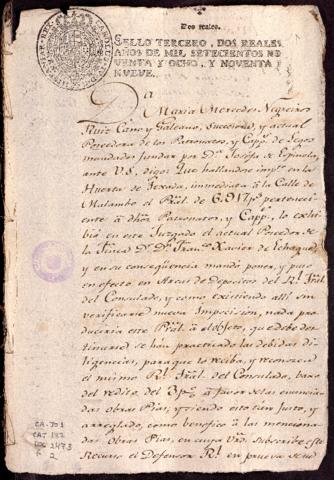 Dos reales.
SELLO TERCERO, DOS REALES
AÑOS DE MIL SETECIENTOS NO
VENTA Y OCHO, Y NOVENTA Y
NUEVE.
Da
Maria Mercedes Negreiros
Ruiz Cano y Galeano, Succesora, y actual
Poseedora de los Patronatos, y Capp.s de Legos
mandados fundar por D.a Josefa de Espinola,
ante V.S. digo: Que hallandose imp.to en la
Huerta de Texada, inmediata à la Calle de
Malambo el Pral. de pertenecien
te à dhos Patronatos, y Capp.s lo exhi
bió en este Juzgado el actual Poseedor de
la Finca D.r D.n Fran.co Xavier de Echague,
y en su conseqüencia mandó poner, y puso
en efecto en Arcas de Depositos del R.l Tral.
del Consulado, y como existiendo alli sin
verificarse nueva Imposicion, nada pro
duciria este Pral. à el objeto, qe debe des
tinarse se hán practicado las debidas di
ligencias, para que lo reciba, y reconosca
el mismo R.l Tral. del Consulado, baxo
del redito del 3 p% à favor de las enuncia
das obras Pias, y siendo esto tan justo, y
arreglado, como benefico à las menciona
das Obras Pias, en cuya subscribe este
Recurso el Defensor R.l en prueva de su
CA-JO1
CAJ 182
DOC 2473
F
2